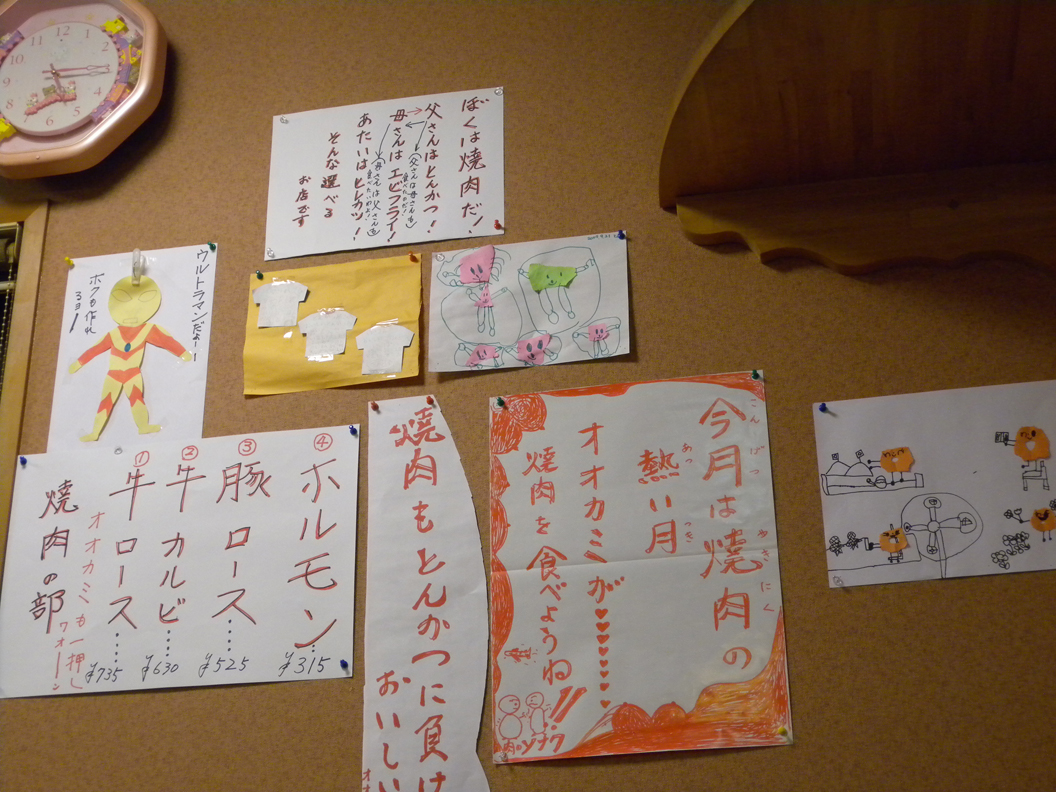 ぼくは焼肉だ!
父さんはとんかつ!
(父さんは母さんも
食べたのだ!)
母さんはエビフライ!
(母さんは父さんも
食べたいわよ!)
あたいはヒレカツ!
そんな選べる
お店です
ウルトラマンだよー!
ボクも作れ
るヨ!
④ホルモン… ¥315
③豚ロース…… ¥525
②牛カルビ…… ¥630
①牛ロース…… ¥735
オオカミも一押し
ワオーン
焼肉の部
焼肉もとんかつに負け
おいしい
今月は焼肉の
こんげつ やきにく
熱い月
あつ つき
オオカミが♥♥♥♥♥♥♥
焼肉を食べようね!!
12 1 2 6 7 8 9 10 11